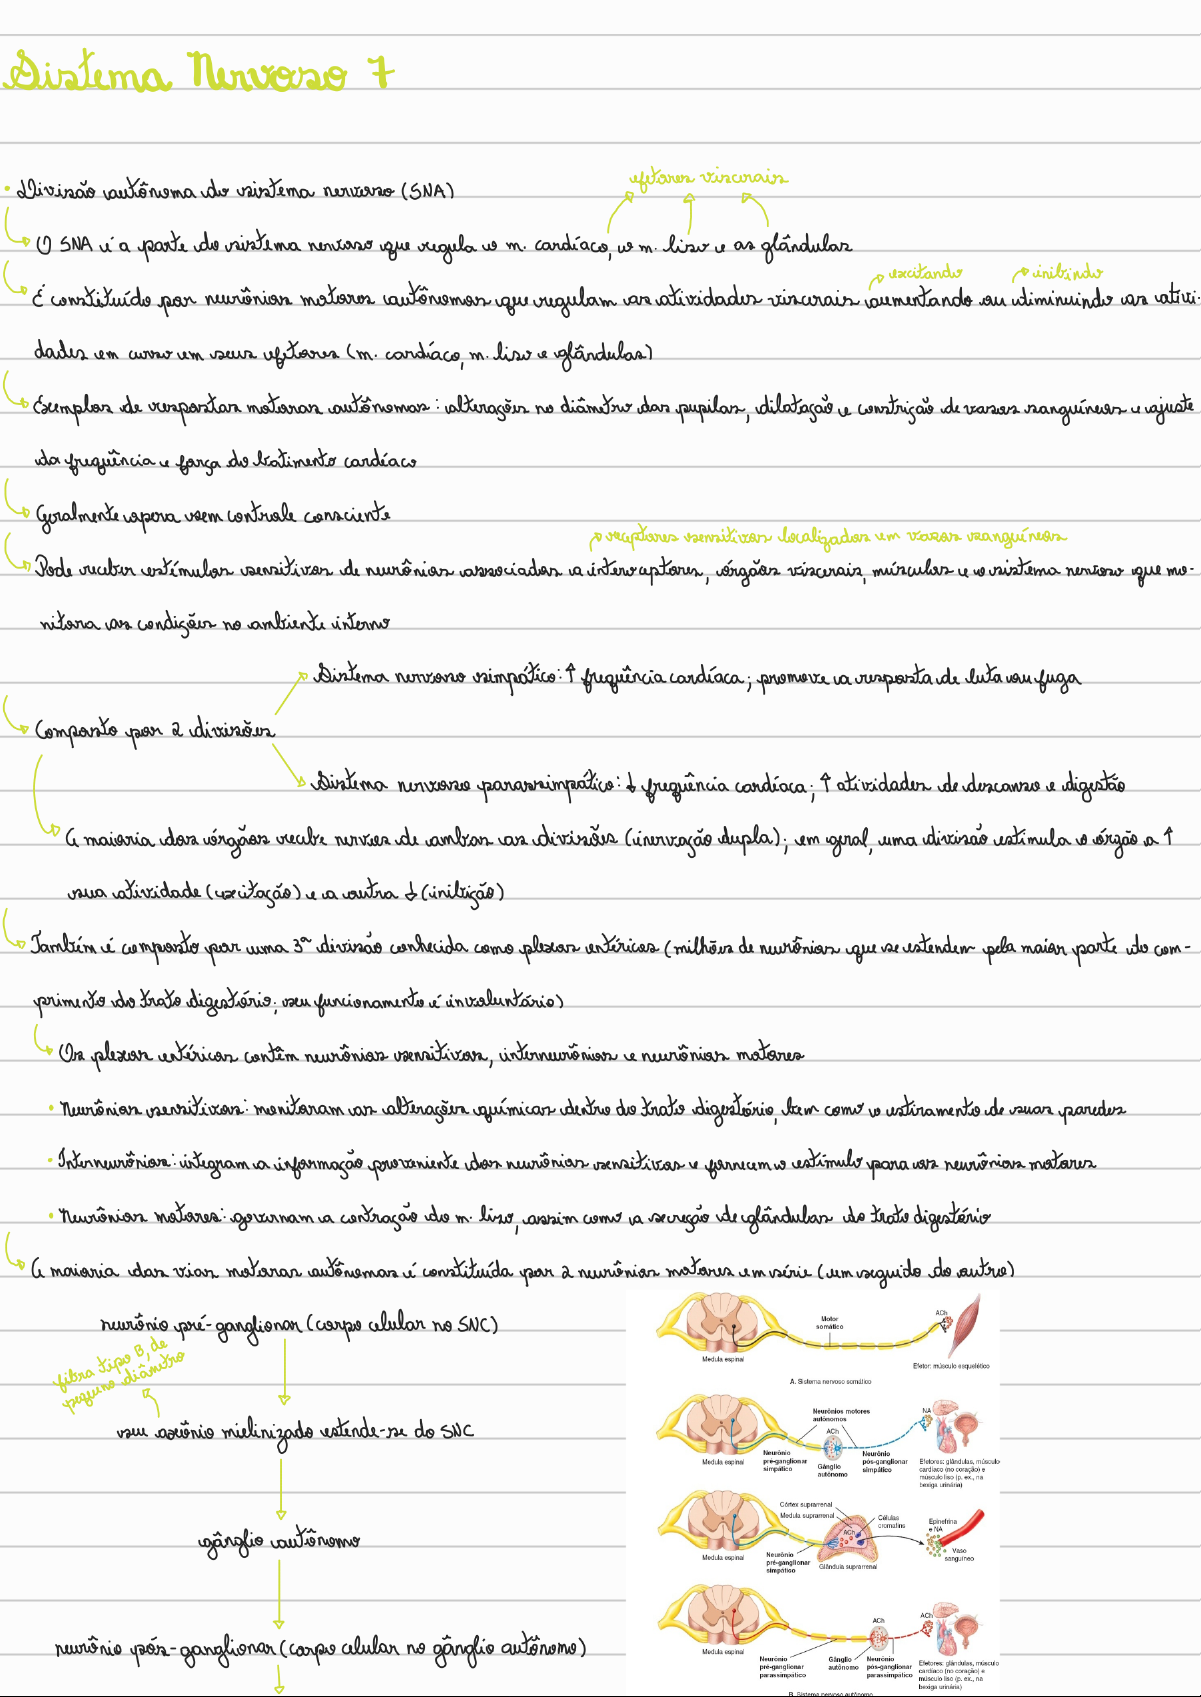 Sistema Nervoso 7
efetores viscerais
• Divisão autônoma do sistema nervoso (SNA)
O SNA é a parte do sistema nervoso que regula o m. cardíaco, o m. liso e as glândulas
excitando
inibindo
É constituído por neurônios motores autônomos que regulam as atividades viscerais aumentando ou diminuindo as ativi-
dades em curso em seus efetores (m. cardíaco, m. liso e glândulas)
Exemplos de respostas motoras autônomas: alterações no diâmetro das pupilas, dilatação e constrição de vasos sanguíneos e ajuste
da frequência e força do batimento cardíaco
Geralmente opera sem controle consciente
receptores sensitivos localizados em vasos sanguíneos
Pode receber estímulos sensitivos de neurônios associados a interoceptores, órgãos viscerais, músculos e o sistema nervoso que mo-
nitora as condições no ambiente interno
Sistema nervoso simpático: ↑ frequência cardíaca; promove a resposta de luta ou fuga
Composto por 2 divisões
Sistema nervoso parassimpático: ↓ frequência cardíaca; ↑ atividades de descanso e digestão
A maioria dos órgãos recebe nervos de ambas as divisões (inervação dupla); em geral, uma divisão estimula o órgão a ↑
sua atividade (excitação) e a outra ↓ (inibição)
Também é composto por uma 3ª divisão conhecida como plexos entéricos (milhões de neurônios que se estendem pela maior parte do com-
primento do trato digestório; seu funcionamento é involuntário)
Os plexos entéricos contêm neurônios sensitivos, interneurônios e neurônios motores
• Neurônios sensitivos: monitoram as alterações químicas dentro do trato digestório, bem como o estiramento de suas paredes
• Interneurônios: integram a informação proveniente dos neurônios sensitivos e fornecem o estímulo para os neurônios motores
• Neurônios motores: governam a contração do m. liso, assim como a secreção de glândulas do trato digestório
A maioria das vias motoras autônomas é constituída por 2 neurônios motores em série (um seguido do outro)
neurônio pré-ganglionar (corpo celular no SNC)
fibra tipo B, de
pequeno diâmetro
seu axônio mielinizado estende-se do SNC
gânglio autônomo
neurônio pós-ganglionar (corpo celular no gânglio autônomo)
Motor
somático
ACh
Medula espinal
Efetor: músculo esquelético
A. Sistema nervoso somático
Neurônios motores
autônomos
ACh
NA
Medula espinal
Neurônio
pré-ganglionar
simpático
Gânglio
autônomo
Neurônio
pós-ganglionar
simpático
Efetores: glândulas, músculo
cardíaco (no coração) e
músculo liso (p. ex., na
bexiga urinária)
Córtex suprarrenal
Medula suprarrenal
ACh
Células
cromafins
Epinefrina
e NA
Medula espinal
Neurônio
pré-ganglionar
simpático
Glândula suprarrenal
Vaso
sanguíneo
ACh
ACh
Medula espinal
Neurônio
pré-ganglionar
parassimpático
Gânglio
autônomo
Neurônio
pós-ganglionar
parassimpático
Efetores: glândulas, músculo
cardíaco (no coração) e
músculo liso (p. ex., na
bexiga urinária)
B. Sistema nervoso autônomo